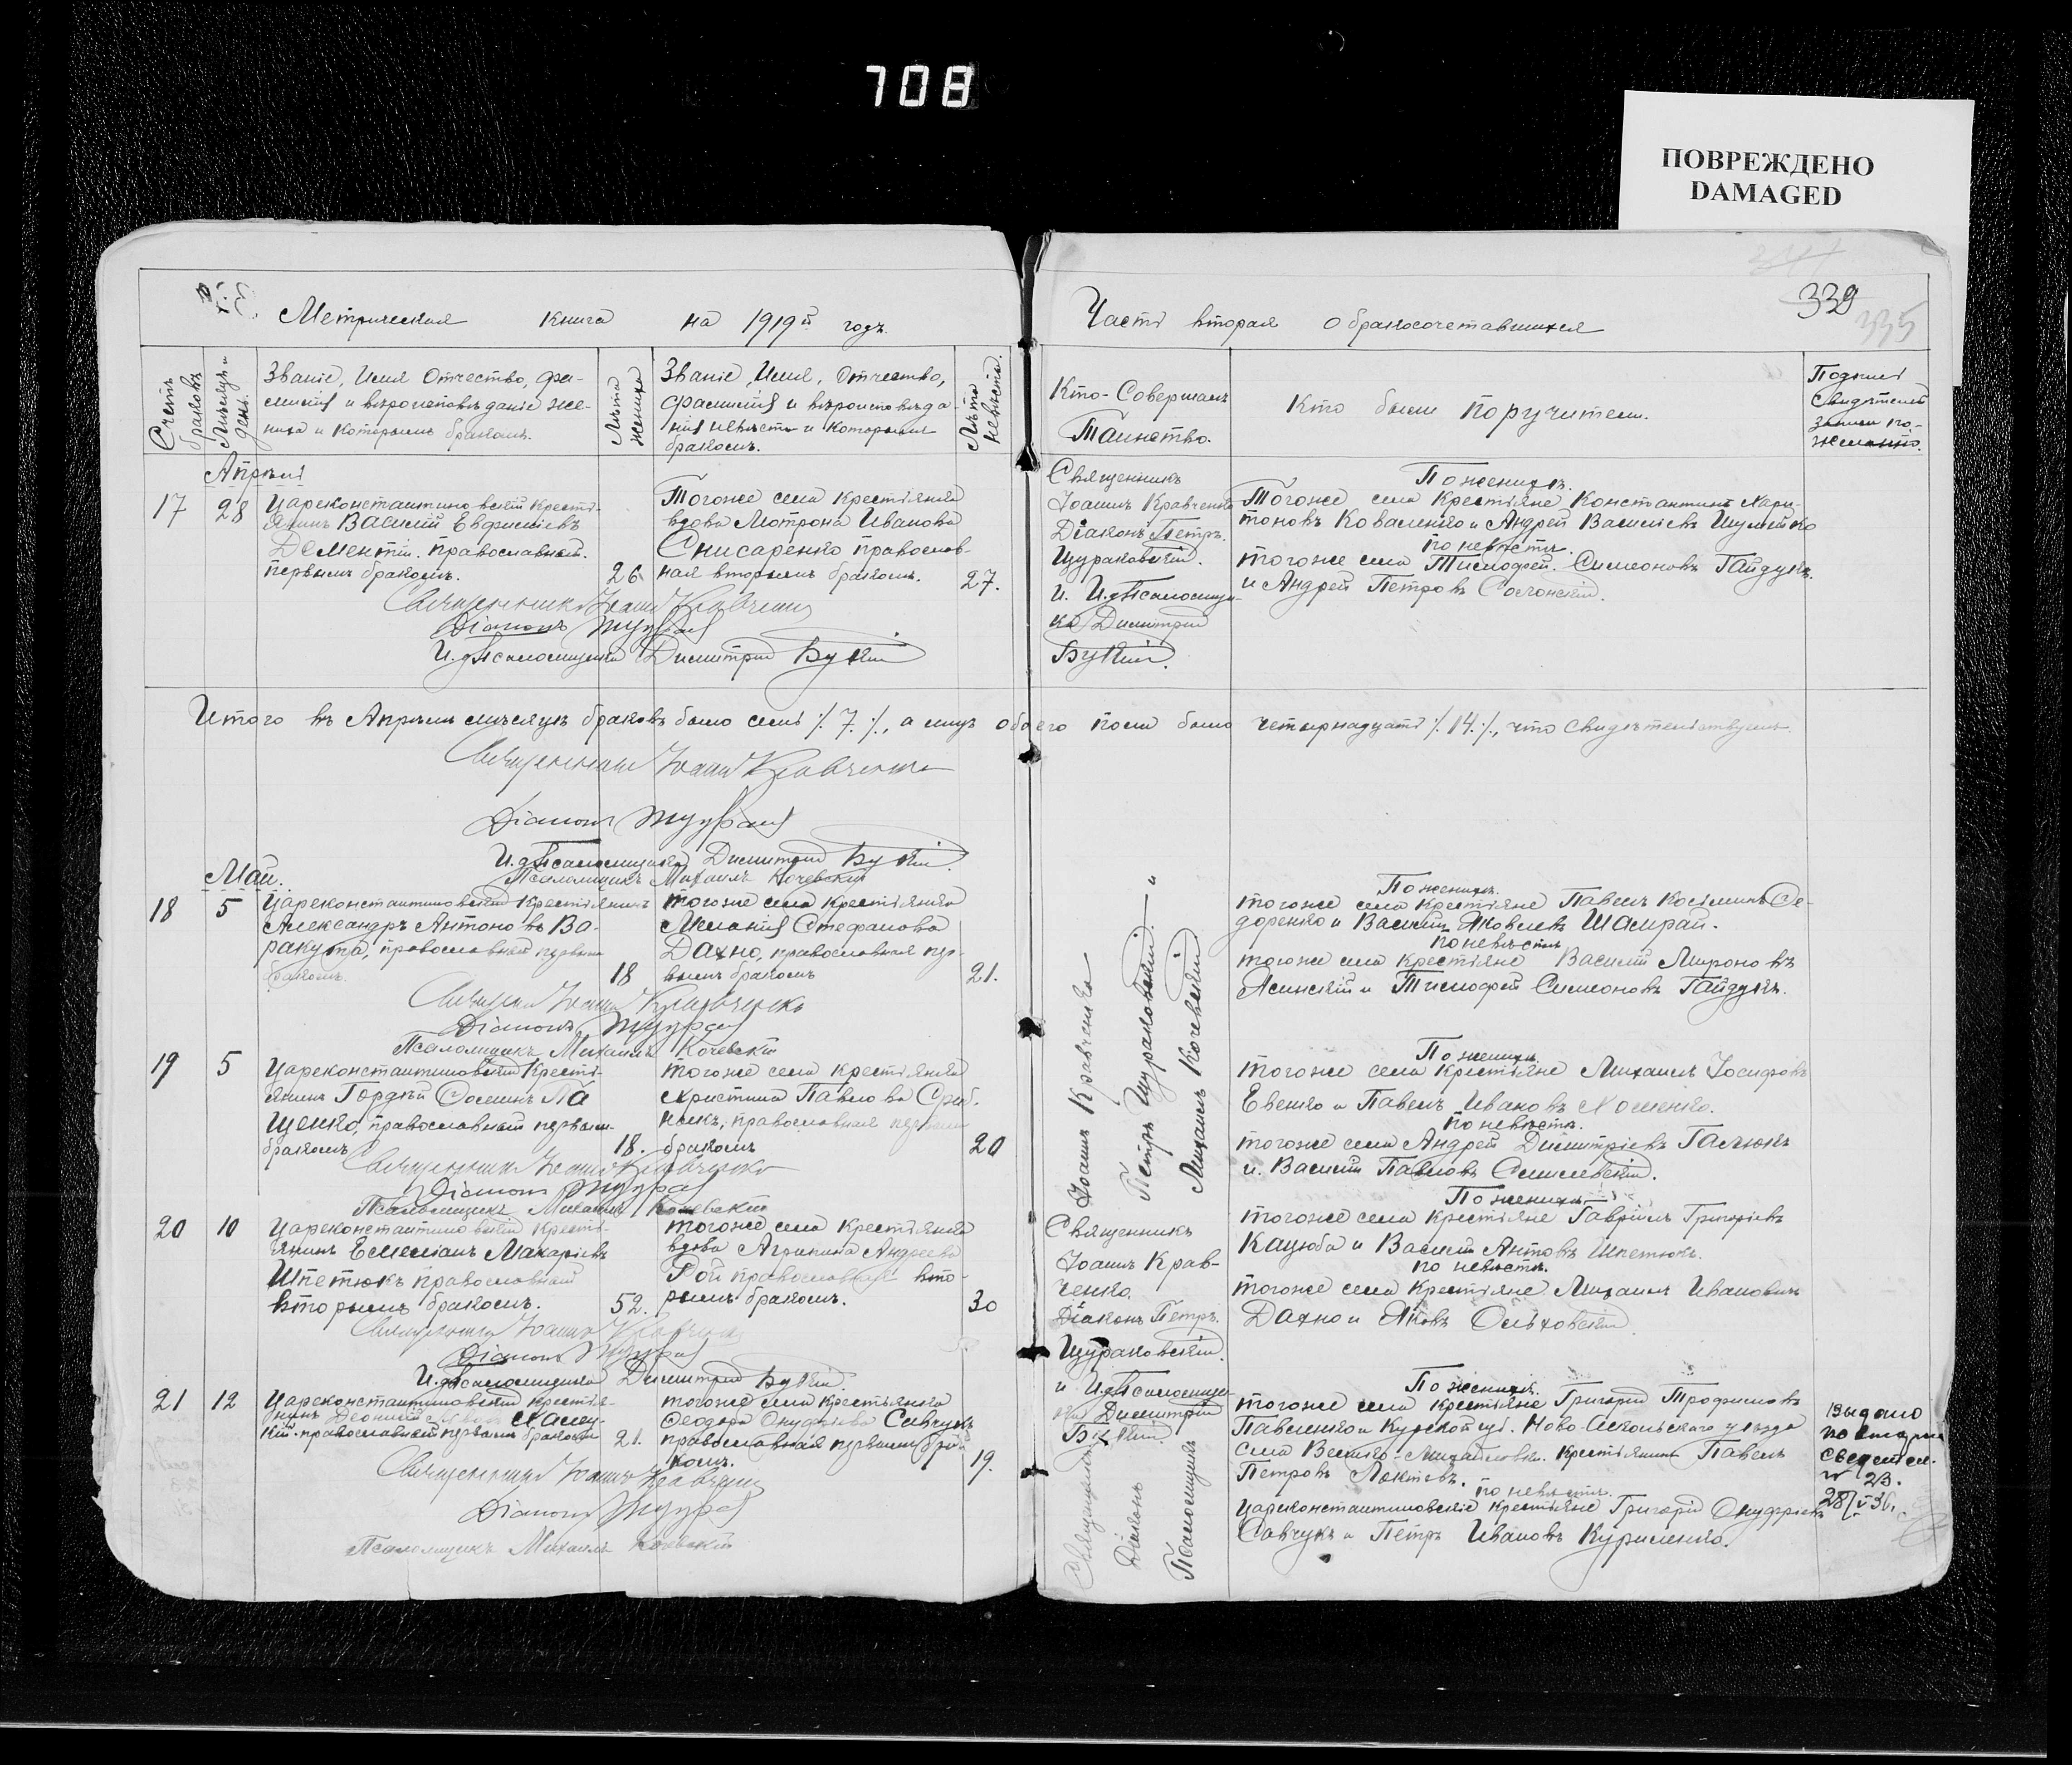 708
ПОВРЕЖДЕНО
DAMAGED
339
335
Метрическая книга на 1919й годъ.
Часть вторая о бракосочетавшихся
Счетъ браковъ
Мѣсяцъ и день.
Званіе, Имя Отчество, фа-
милія и вѣроисповѣданіе же-
ниха и которымъ бракомъ.
Лѣта жениха
Званіе, Имя, Отчество,
фамилія и вѣроисповѣда-
нія невѣсты и которымъ
бракомъ.
Лѣта невѣсты.
Кто Совершалъ
Таинство.
Кто были поручители.
Подписи
Свидѣтелей
записи по-
желанію.
Апрѣль
17
28
Цареконстантиновскій кресть-
янинъ Василій Евфиміевъ
Дементій. православный.
первымъ бракомъ.
26
Тогоже села крестьянка
вдова Мотрона Иванова
Снисаренко православ-
ная вторымъ бракомъ.
27.
Священникъ
Іоаннъ Кравченко
Діаконъ Петръ.
Щураковскій.
и И.д. Псаломщи-
ка Димитрій
По женихѣ.
Тогоже села крестьяне Константинъ Хари-
тоновъ Коваленко и Андрей Василіевъ Шулейко
по невѣстѣ.
тогоже села Тимофей Симеоновъ Гайдукъ.
и Андрей Петровъ Солонскій.
Священникъ Іоаннъ Кравченко
Діаконъ
И.д. Псаломщика Димитрій
Итого въ Апрѣлѣ мѣсяцѣ браковъ было семь /. 7. /., а лицъ обоего пола было четырнадцать /. 14. /., что свидѣтельствуемъ
Священникъ Іоаннъ Кравченко
Діаконъ
И.д. Псаломщика Димитрій
Псаломщикъ Михаилъ Кочевскій
Май.
18
5
Цареконстантиновскій крестьянинъ
Александръ Антоновъ Ва-
ракута, православный первымъ
бракомъ.
18
тогоже села крестьянка
Меланія Стефанова
Дахно, православная пер-
вымъ бракомъ
21.
По женихѣ.
тогоже села крестьяне Павелъ Косьминъ Се-
доренко и Василій Яковлевъ Шамрай.
по невѣстѣ
тогоже села крестьяне Василій Мироновъ
Ясинскій и Тимофей Симеоновъ Гайдукъ.
Священникъ Іоаннъ Кравченко
Діаконъ
Псаломщикъ Михаилъ Кочевскій
19
5
Цареконстантиновскій кресть-
янинъ Гордѣй Соминъ Па
щенко, православный первымъ
бракомъ
18.
тогоже села крестьянка
Христина Павлова
православная первымъ
бракомъ
20
По женихѣ.
тогоже села крестьяне Михаилъ Іосифовъ
Евенко и Павелъ Ивановъ Хоменко.
по невѣстѣ.
тогоже села Андрей Димитріевъ Галюкъ
и Василій Павловъ
Священникъ Іоаннъ Кравченко
Діаконъ
Псаломщикъ Михаилъ Кочевскій
20
10
Цареконстантиновскій кресть-
янинъ Емеліанъ Макаріевъ
Шпетюкъ православный
вторымъ бракомъ.
52.
тогоже села крестьянка
вдова Агрипина Андреева
Рой православная вто-
рымъ бракомъ.
30
Священникъ
Іоаннъ Крав-
ченко.
Діаконъ Петръ.
Щураковскій.
и И.д. Псаломщи-
ка Димитрій
По женихѣ
тогоже села крестьяне Гавріилъ Григорьевъ
Кацюба и Василій Антовъ Шпетюкъ.
по невѣстѣ.
тогоже села крестьяне Михаилъ Ивановичъ
Дахно и Яковъ Ольховскій
Священникъ Іоаннъ Кравченко
Діаконъ
И.д. Псаломщика Димитрій
21
12
Цареконстантиновскій крестья-
нинъ
православный первымъ бракомъ
21.
тогоже села крестьянка
Ѳеодора Онуфріева Савчукъ
православная первымъ бра-
комъ.
19.
По женихѣ.
тогоже села крестьяне Григорій Трофимовъ
Павленко и Курской губ. Ново-Оскольского уѣзда
села Велико-Михайловки. крестьянинъ Павелъ
Петровъ Локтевъ.
по невѣстѣ.
Цареконстантиновскіе крестьяне Григорій Онуфріевъ
Савчукъ и Петръ Ивановъ Куриленко.
выдано
свидетел.
№ 23.
28/V 36.
Священникъ Іоаннъ Кравченко
Діаконъ
Псаломщикъ Михаилъ Кочевскій
Священникъ Іоаннъ Кравченко
Діаконъ Петръ Щураковскій.
Псаломщикъ Михаилъ Кочевскій